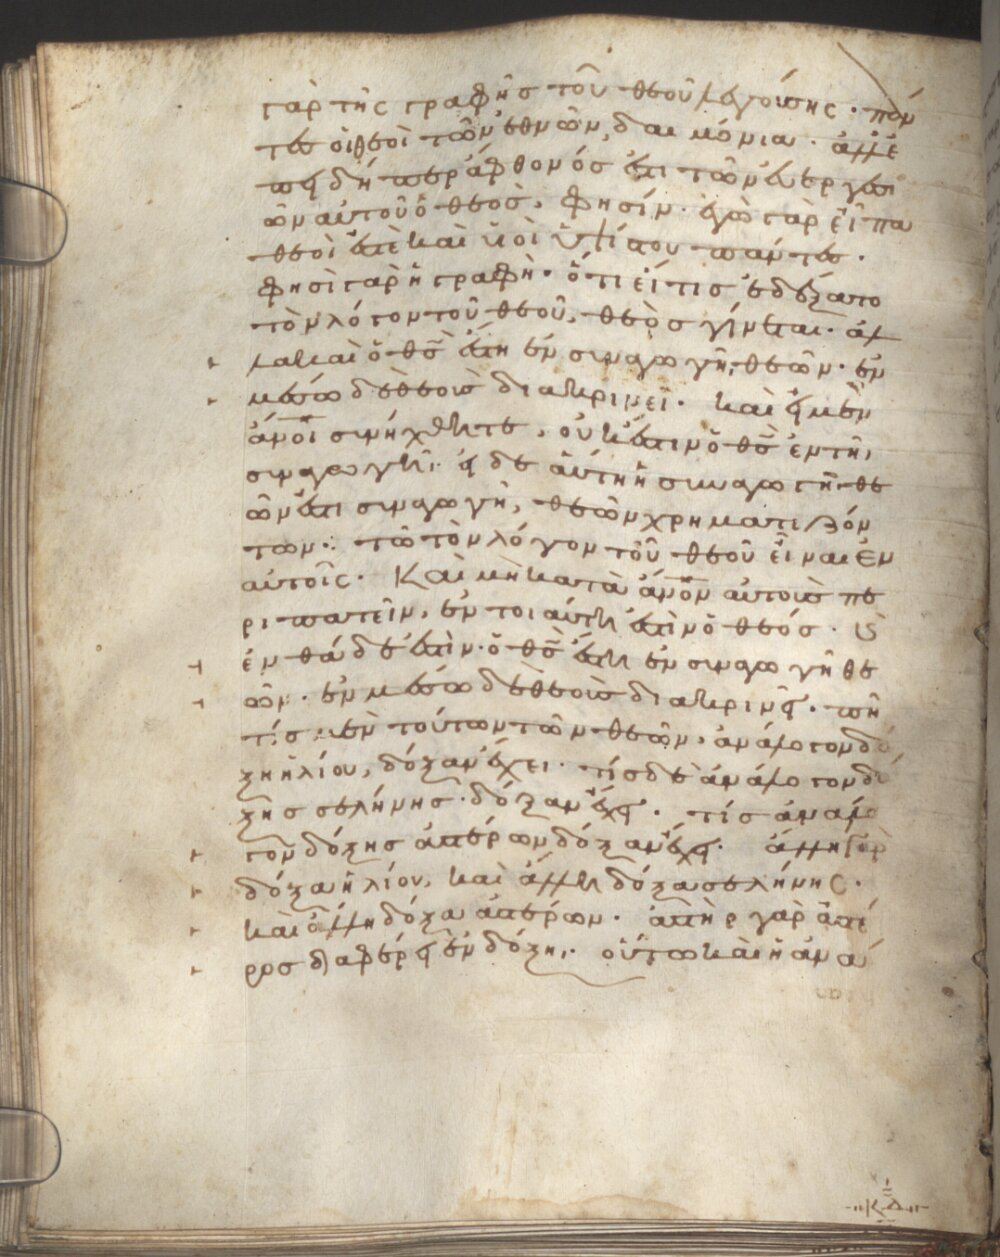 γὰρ τῆς γραφῆς τοῦ θεοῦ λεγούσης· πάν
τες οἱ θεοὶ τῶν ἐθνῶν, δαιμόνια· ἀλλ' ἐ
πειδήπερ ἄφθονός ἐστι τῶν εὐεργεσι
ῶν αὐτοῦ ὁ θεὸς, φησίν· ἐγὼ γὰρ εἶπα
θεοί ἐστε καὶ υἱοὶ ὑψίστου πάντες·
φησὶ γὰρ ἡ γραφὴ· ὅτι εἴ τις ἐδέξατο
τὸν λόγον τοῦ θεοῦ, θεὸς γίνεται· ἀλ
λὰ καὶ ὁ θς ἔστη ἐν συναγωγῆ θεῶν· ἐν
μέσω δὲ θεοὺς διακρινεῖ· καὶ εἰ μὲν
ἄνοι συνήχθητε, οὐκ ἔστιν ὁ θς ἐν τῆ
συναγωγῆ· εἰ δὲ αὕτη ἡ συναγωγὴ θε
ῶν ἐστι συναγωγὴ, θεῶν χρηματιζόν
των· τῶ τὸν λόγον τοῦ θεοῦ εἶναι ἐν
αὐτοῖς· Καὶ μὴ κατὰ ἄνον αὐτοὺς πε
ριπατεῖν, ἐν τοιαύτη ἐστὶν ὁ θεός·
ἐνθάδε ἐστὶν· ὁ θς ἔστη ἐν συναγωγῆ θε
ῶν· ἐν μέσω δὲ θεοὺς διακρινεῖ·
τίς μὲν τούτων τῶν θεῶν, ἀνάλογον δό
ξη ἡλίου, δόξαν ἔχει· τίς δὲ ἀνάλογον δό
ξης σελήνης δόξαν ἔχει· τίς ἀνάλο
γον δόξης ἀστέρων δόξαν ἔχει· ἄλλη γὰρ
δόξα ἡλίου, καὶ ἄλλη δόξα σελήνης·
καὶ ἄλλη δόξα ἀστέρων· ἀστὴρ γὰρ ἀστέ
ρος διαφέρει ἐν δόξη· οὕτω καὶ ἡ ἀνά
ΚΔ